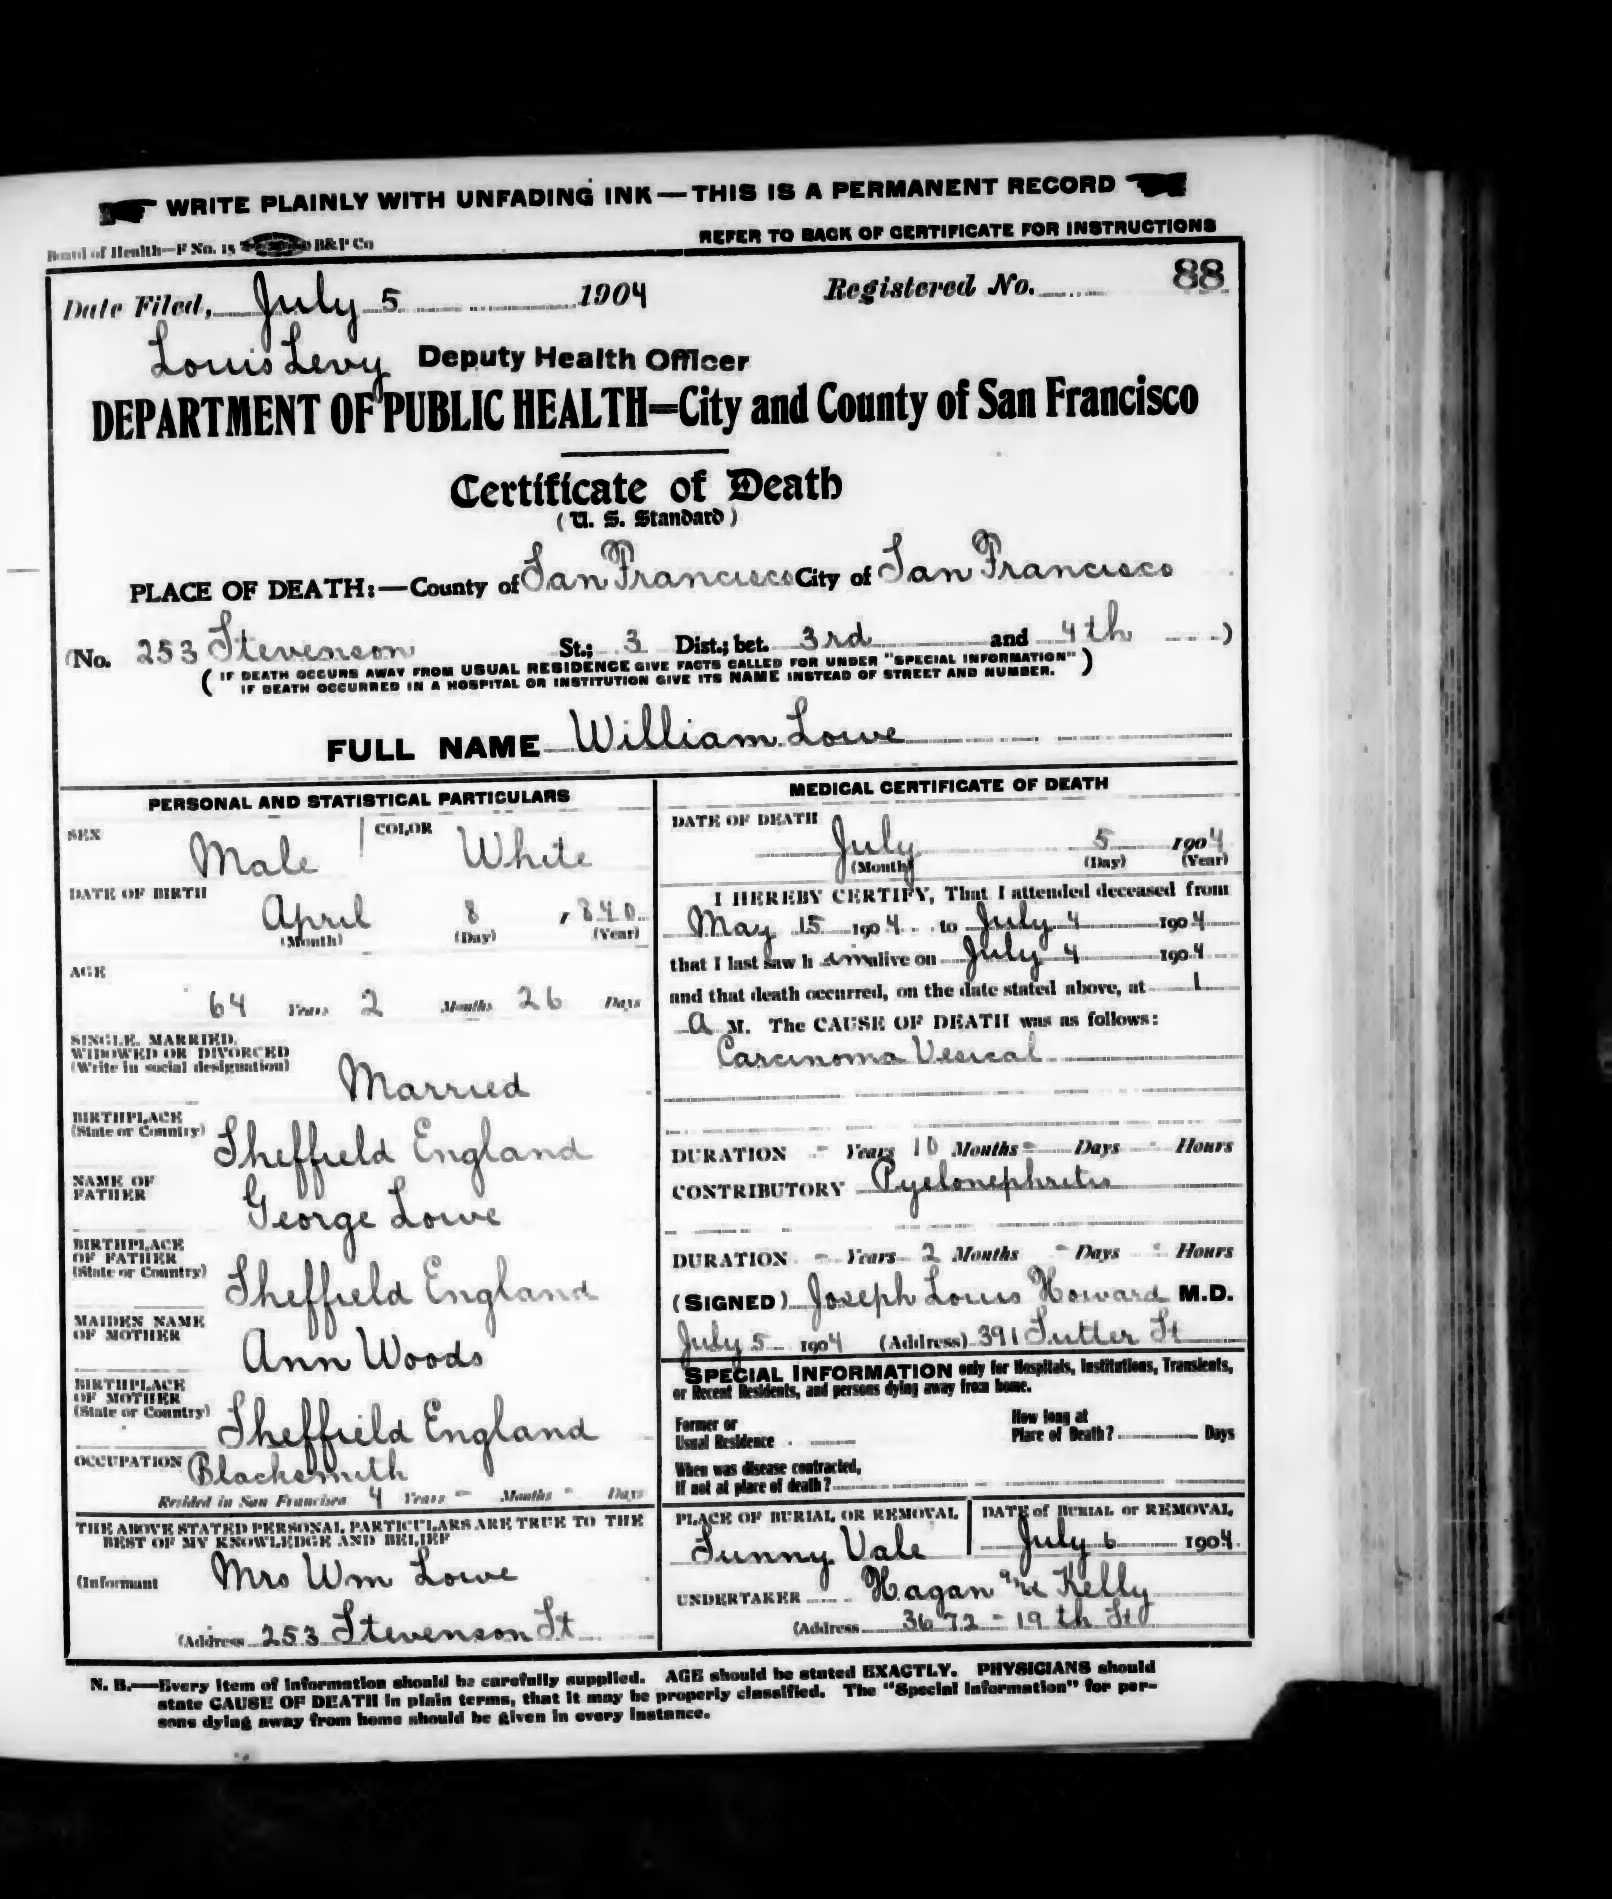 WRITE PLAINLY WITH UNFADING INK — THIS IS A PERMANENT RECORD
Board of Health—F No. 15 B&P Co
REFER TO BACK OF CERTIFICATE FOR INSTRUCTIONS
Date Filed, July 5 1904 Registered No. 88
Louis Levy Deputy Health Officer
DEPARTMENT OF PUBLIC HEALTH=City and County of San Francisco
Certificate of Death
(U. S. Standard)
PLACE OF DEATH:—County of San Francisco City of San Francisco
(No. 253 Stevenson St.; 3 Dist.; bet. 3rd and 4th )
( IF DEATH OCCURS AWAY FROM USUAL RESIDENCE GIVE FACTS CALLED FOR UNDER "SPECIAL INFORMATION" )
IF DEATH OCCURRED IN A HOSPITAL OR INSTITUTION GIVE ITS NAME INSTEAD OF STREET AND NUMBER.
FULL NAME William Lowe
PERSONAL AND STATISTICAL PARTICULARS
SEX Male COLOR White
DATE OF BIRTH
April 8 , 840
(Month) (Day) (Year)
AGE
64 Years 2 Months 26 Days
SINGLE, MARRIED,
WIDOWED OR DIVORCED
(Write in social designation) Married
BIRTHPLACE
(State or Country) Sheffield England
NAME OF
FATHER George Lowe
BIRTHPLACE
OF FATHER
(State or Country) Sheffield England
MAIDEN NAME
OF MOTHER Ann Woods
BIRTHPLACE
OF MOTHER
(State or Country) Sheffield England
OCCUPATION Blacksmith
Resided in San Francisco 4 Years - Months - Days
THE ABOVE STATED PERSONAL PARTICULARS ARE TRUE TO THE
BEST OF MY KNOWLEDGE AND BELIEF
(Informant Mrs Wm Lowe
(Address 253 Stevenson St
MEDICAL CERTIFICATE OF DEATH
DATE OF DEATH
July 5 1904
(Month) (Day) (Year)
I HEREBY CERTIFY, That I attended deceased from
May 15 1904 to July 4 1904
that I last saw h im alive on July 4 1904
and that death occurred, on the date stated above, at 1
A M. The CAUSE OF DEATH was as follows:
Carcinoma Vesical
DURATION - Years 10 Months - Days - Hours
CONTRIBUTORY Pyelonephritis
DURATION - Years 2 Months - Days - Hours
(SIGNED) Joseph Louis Howard M.D.
July 5 1904 (Address) 391 Sutter St
SPECIAL INFORMATION only for Hospitals, Institutions, Transients,
or Recent Residents, and persons dying away from home.
Former or
Usual Residence
How long at
Place of Death? Days
When was disease contracted,
If not at place of death?
PLACE OF BURIAL OR REMOVAL
Sunny Vale
DATE of BURIAL or REMOVAL
July 6 1904
UNDERTAKER Hagan and Kelly
(Address 3672-19th St
N. B.—Every item of information should be carefully supplied. AGE should be stated EXACTLY. PHYSICIANS should
state CAUSE OF DEATH in plain terms, that it may be properly classified. The "Special Information" for per-
sons dying away from home should be given in every instance.